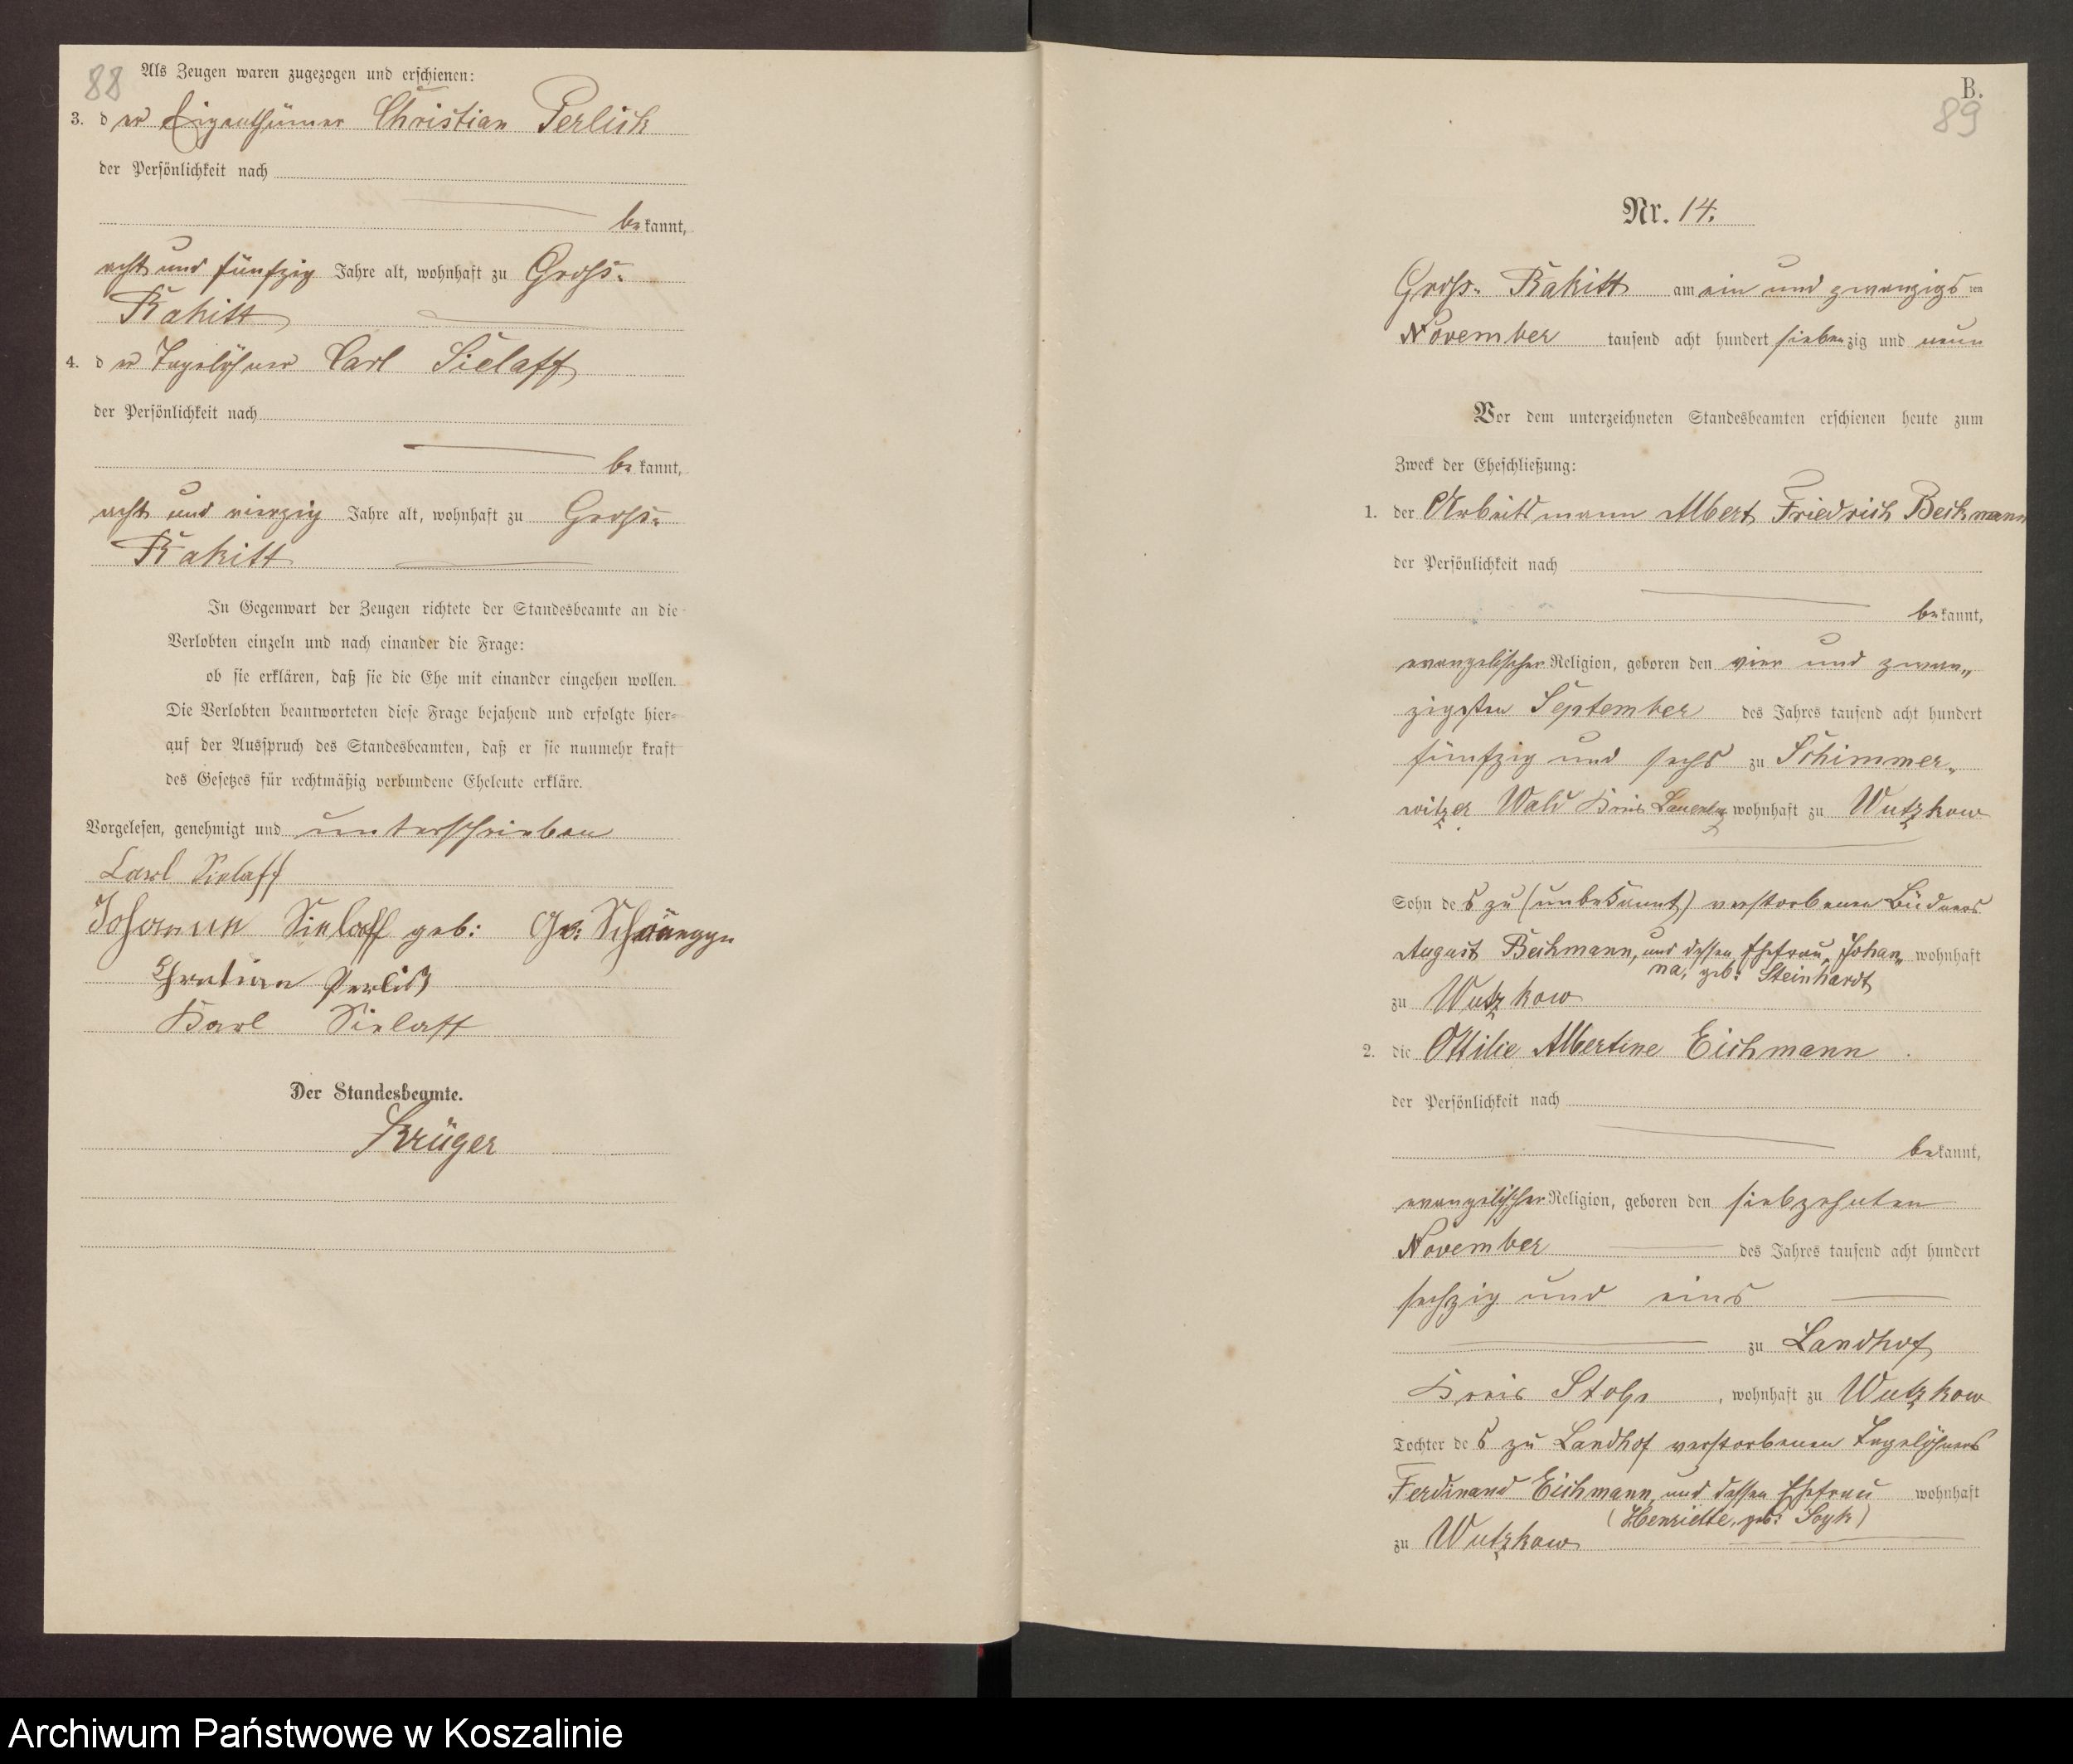 88
Als Zeugen waren zugezogen und erschienen:
3. d er Eigenthümer Christian Perlick
der Persönlichkeit nach
be kannt,
acht und fünfzig Jahre alt, wohnhaft zu Gross-
Rakitt
4. d er Tagelöhner Carl Sielaff
der Persönlichkeit nach
be kannt,
acht und vierzig Jahre alt, wohnhaft zu Gross-
Rakitt
In Gegenwart der Zeugen richtete der Standesbeamte an die
Verlobten einzeln und nach einander die Frage:
ob sie erklären, daß sie die Ehe mit einander eingehen wollen.
Die Verlobten beantworteten diese Frage bejahend und erfolgte hier-
auf der Ausspruch des Standesbeamten, daß er sie nunmehr kraft
des Gesetzes für rechtmäßig verbundene Eheleute erkläre.
Vorgelesen, genehmigt und unterschrieben
Carl Sielaff
Sielaff geb:
Perlick
Karl Sielaff
Der Standesbeamte.
Krüger
B.
89
Nr. 14.
Gross- Rakitt am ein und zwanzigs ten
November tausend acht hundert sieben zig und neun
Vor dem unterzeichneten Standesbeamten erschienen heute zum
Zweck der Eheschließung:
1. der Arbeitsmann Albert Friedrich Beckmann
der Persönlichkeit nach
be kannt,
evangelischer Religion, geboren den vier und zwan„
zigsten September des Jahres tausend acht hundert
fünfzig und sechs zu Schimmer„
witzer Wald Kreis Lauenburg wohnhaft zu Wutzkow
Sohn de s zu (unbekannt) verstorbenen Büdners
August Beckmann, und dessen Ehefrau, Johan„ wohnhaft
na, geb: Steinhardt
zu Wutzkow
2. die Ottilie Albertine Eichmann
der Persönlichkeit nach
be kannt,
evangelischer Religion, geboren den siebzehnten
November des Jahres tausend acht hundert
sechzig und eins
zu Landhof
Kreis Stolp, wohnhaft zu Wutzkow
Tochter de s zu Landhof verstorbenen Tagelöhners
Ferdinand Eichmann, und dessen Ehefrau wohnhaft
(Henriette, geb: Soyk)
zu Wutzkow
Archiwum Państwowe w Koszalinie